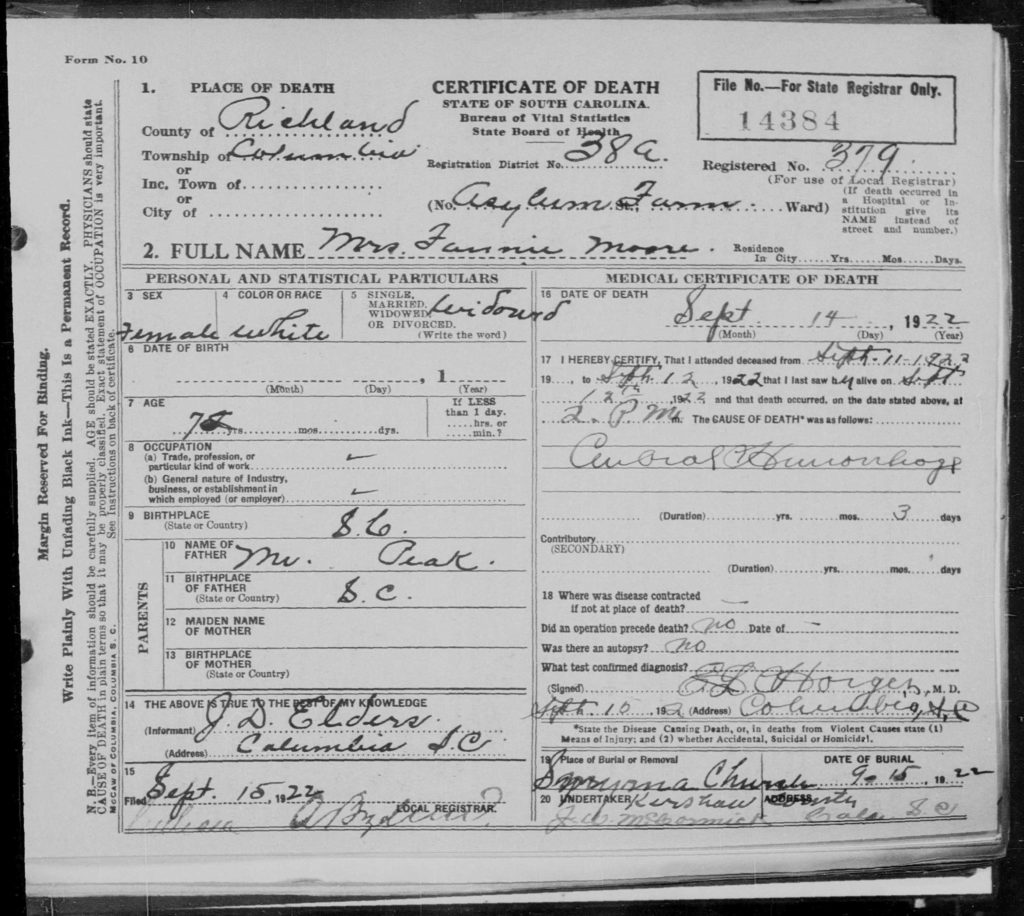 Form No. 10
1. PLACE OF DEATH
County of Richland
Township of Columbia
or
Inc. Town of
or
City of
CERTIFICATE OF DEATH
STATE OF SOUTH CAROLINA.
Bureau of Vital Statistics
State Board of Health
Registration District No. 38a.
(No. Asylum St., Farm Ward)
File No.—For State Registrar Only.
14384
Registered No. 379
(For use of Local Registrar)
(If death occurred in
a Hospital or In-
stitution give its
NAME instead of
street and number.)
2. FULL NAME Mrs. Fannie Moore.
Residence
In City Yrs. Mos. Days.
PERSONAL AND STATISTICAL PARTICULARS
3 SEX
Female
4 COLOR OR RACE
White
5 SINGLE,
MARRIED,
WIDOWED
OR DIVORCED.
(Write the word)
Widowed
6 DATE OF BIRTH
, 1
(Month) (Day) (Year)
7 AGE
yrs. mos. dys.
If LESS
than 1 day.
hrs. or
min.?
8 OCCUPATION
(a) Trade, profession, or
particular kind of work
(b) General nature of Industry,
business, or establishment in
which employed (or employer)
9 BIRTHPLACE
(State or Country)
S.C.
PARENTS
10 NAME OF
FATHER Mr. Peak.
11 BIRTHPLACE
OF FATHER
(State or Country)
S.C.
12 MAIDEN NAME
OF MOTHER
13 BIRTHPLACE
OF MOTHER
(State or Country)
14 THE ABOVE IS TRUE TO THE BEST OF MY KNOWLEDGE
(Informant) J. D. Elders.
(Address) Columbia S.C
15
Filed Sept. 15, 1922
LOCAL REGISTRAR.
MEDICAL CERTIFICATE OF DEATH
16 DATE OF DEATH
Sept 14, 1922
(Month) (Day) (Year)
17 I HEREBY CERTIFY, That I attended deceased from Sept. 11 1922
19 , to Sept. 12, 1922 that I last saw h alive on Sept
12, 1922 and that death occurred, on the date stated above, at
2. P M. m. The CAUSE OF DEATH* was as follows:
Cerebral Hemorrhage
(Duration) yrs. mos. 3 days
Contributory
(SECONDARY)
(Duration) yrs. mos. days
18 Where was disease contracted
if not at place of death?
Did an operation precede death? no Date of
Was there an autopsy? no
What test confirmed diagnosis?
(Signed) Horger, M. D.
Sept. 192 (Address) Columbia, S.C
*State the Disease Causing Death, or, in deaths from Violent Causes state (1)
Means of Injury; and (2) whether Accidental, Suicidal or Homicidal.
19 Place of Burial or Removal
Smyrna Church
DATE OF BURIAL
9-15, 1922
20 UNDERTAKER Kershaw County
ADDRESS
McCormick Cola S.C
Margin Reserved For Binding.
Write Plainly With Unfading Black Ink—This Is a Permanent Record.
N. B.—Every item of information should be carefully supplied. AGE should be stated EXACTLY. PHYSICIANS should state
CAUSE OF DEATH in plain terms so that it may be properly classified. Exact statement of OCCUPATION is very important.
See Instructions on back of certificate.
McCAW OF COLUMBIA, COLUMBIA S. C.